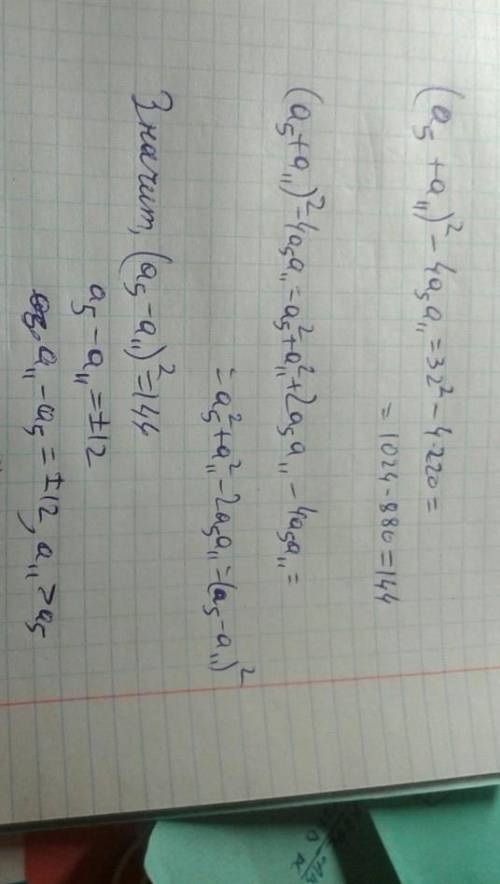 (a₅ + a₁₁)² - 4a₅a₁₁ = 32² - 4·220 =
= 1024 - 880 = 144
(a₅+a₁₁)² - 4a₅a₁₁ = a₅² + a₁₁² + 2a₅a₁₁ - 4a₅a₁₁ =
= a₅² + a₁₁² - 2a₅a₁₁ = (a₅ - a₁₁)²
Значит, (a₅ - a₁₁)² = 144
a₅ - a₁₁ = ±12
a₁₁ - a₅ = ±12, a₁₁ > a₅